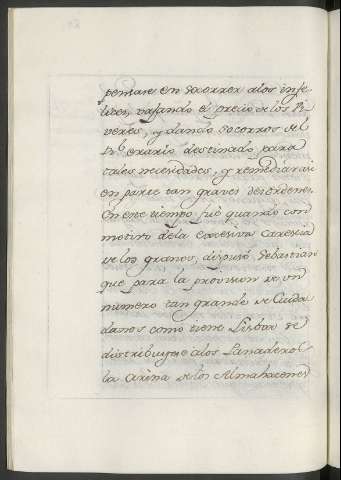 pensase en socorrer a los infe-
lices, vajando el precio de los Vi-
veres, y dando socorros del
Rl. erario destinado para
tales necesidades, y remediar asi
en parte tan graves desordenes.
En este tiempo fué quando con
motivo de la excesiva Carestia
de los granos, dispusó Sebastian
que para la provision de un
numero tan grande de Ciuda
danos como tiene Lisboa se
distribuyese a los Panaderos
la arina de los Almahacenes